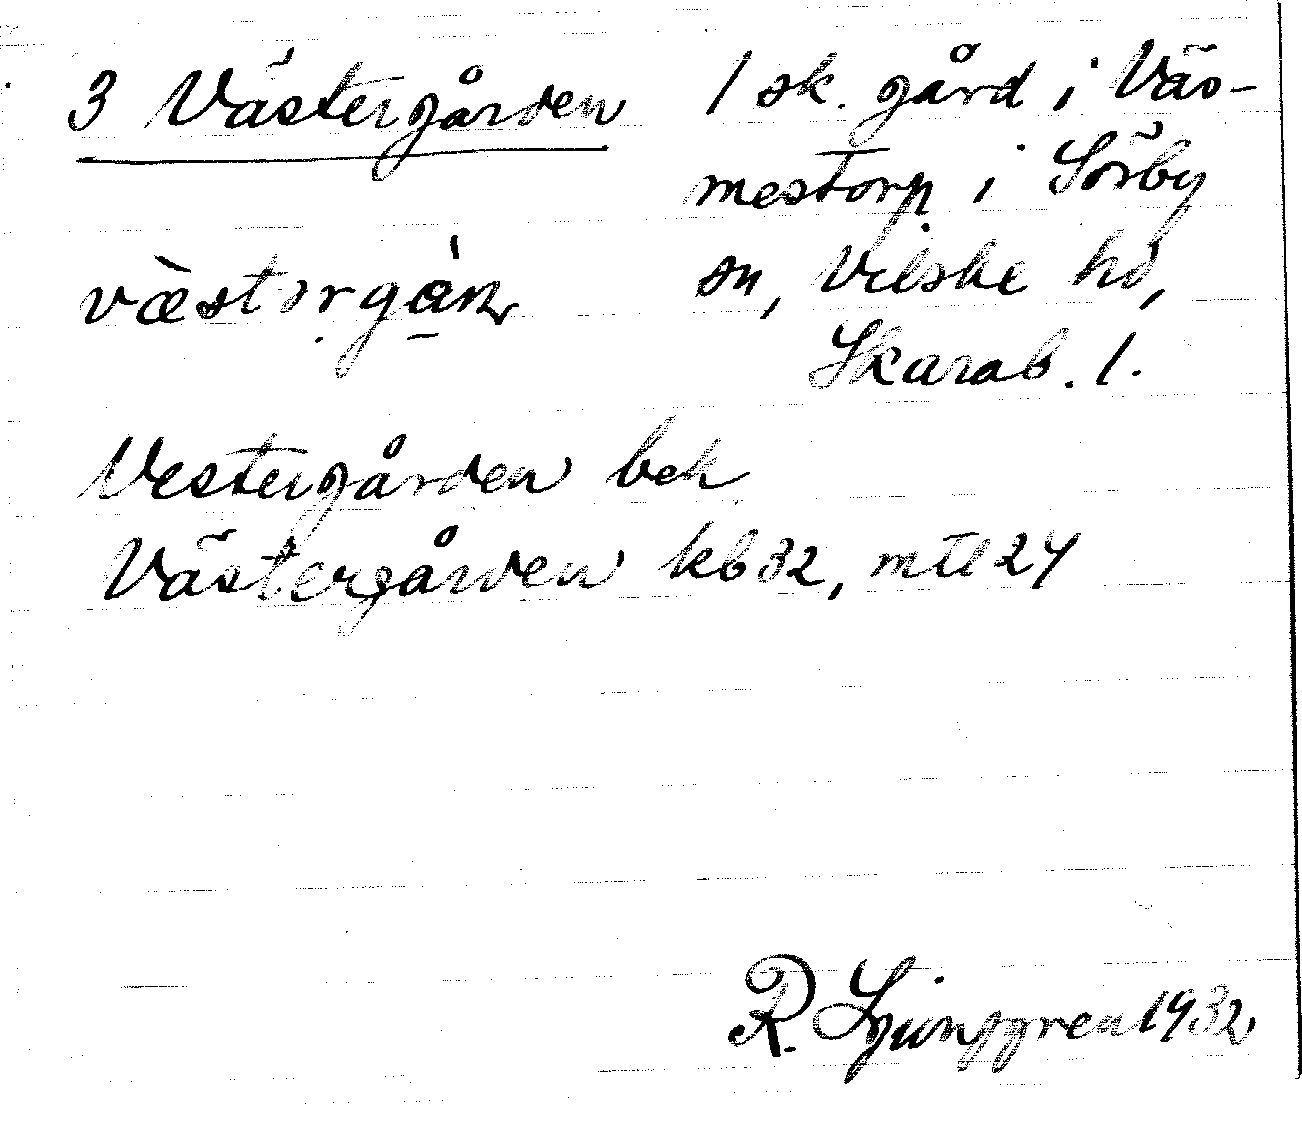 3 Västergården
1 sk. gård i Väs-
mestorp i Sörby
sn, Vilske hd,
Skarab. l.
væ̀stərgán
Vestergården bek
Västergården kb 32, mtl 24
R. Ljunggren 1932